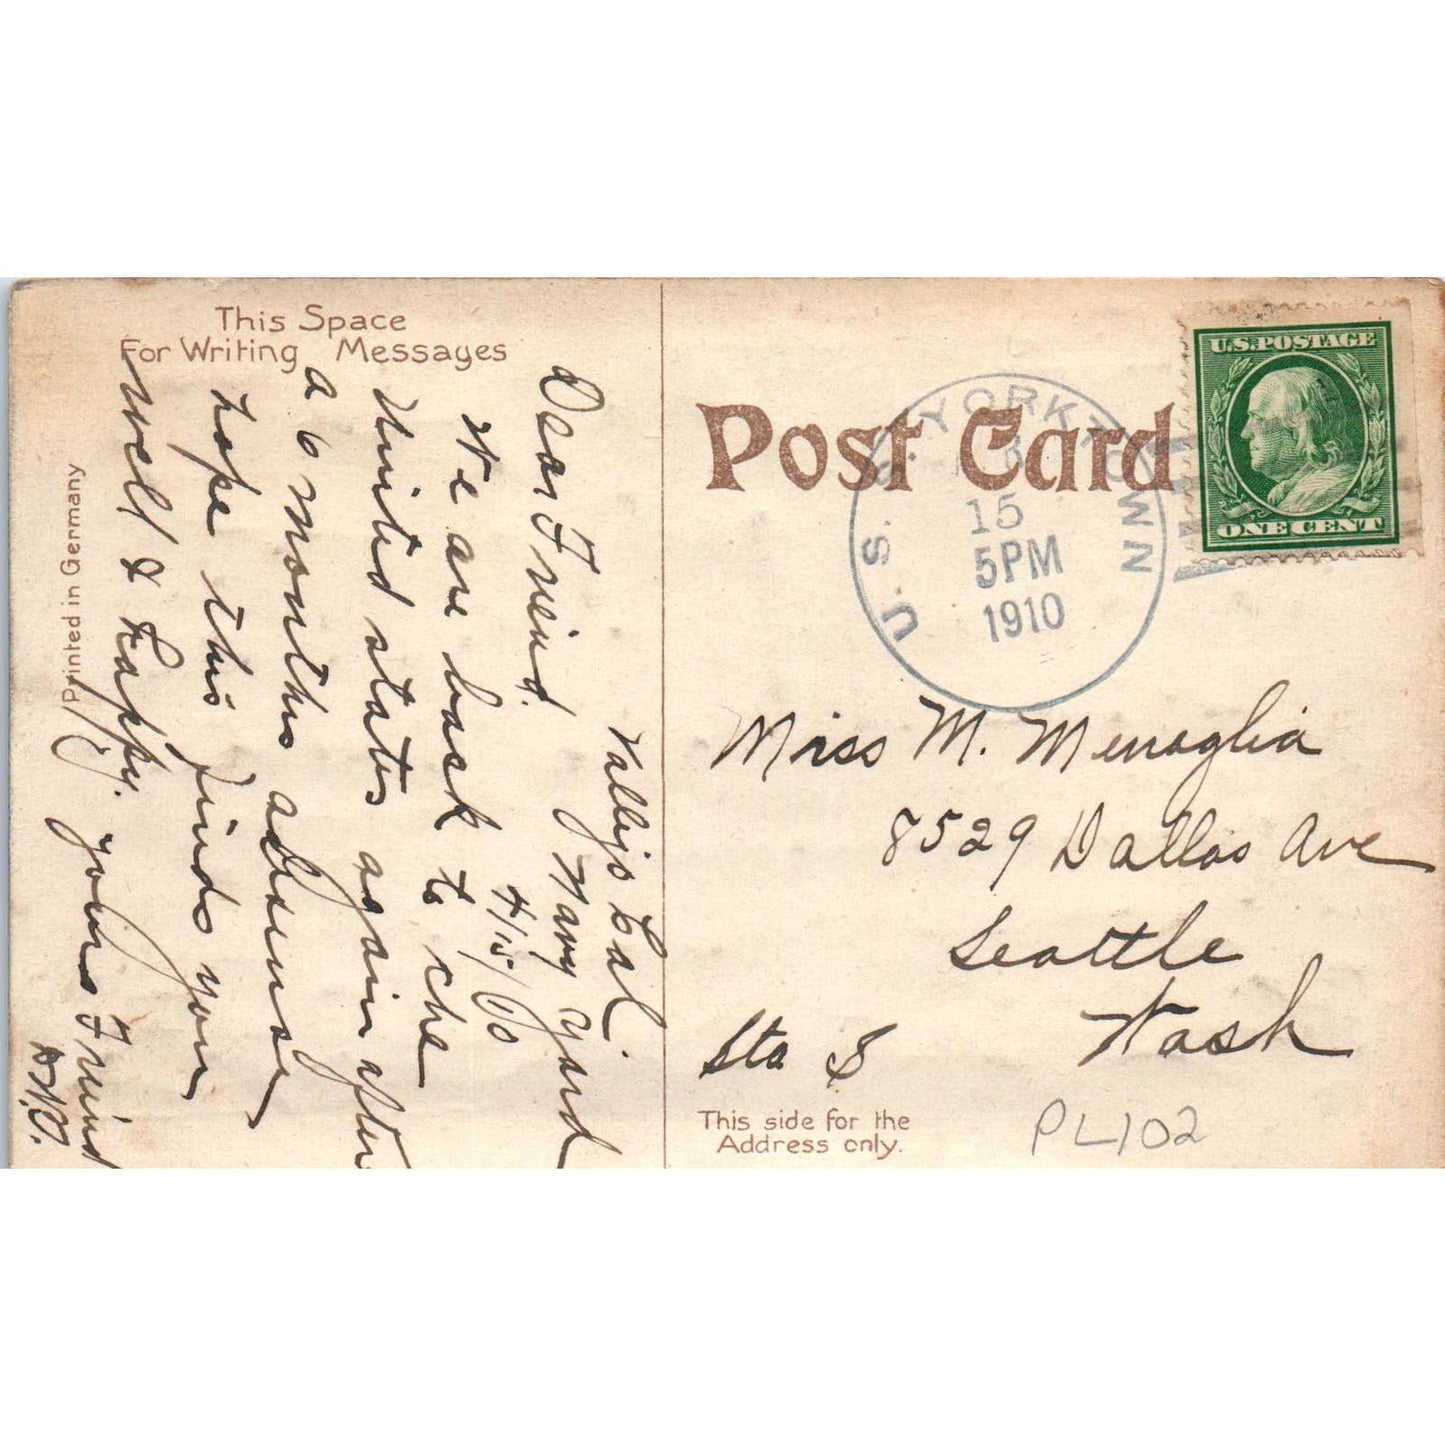 This Space
For Writing Messages
Printed in Germany
Vallijo Cal.
Navy Yard
4/15/10
Dear Friend.
We are back to the
United states again after
a 6 months absense
hope this finds you
well & happy.
yours Friend
Post Card
U.S.S. YORKTOWN
15
5PM
1910
U.S. POSTAGE
ONE CENT
Miss M. Menaglia
8529 Dallas Ave
Seattle
Wash
Sta S
This side for the
Address only.
PL102